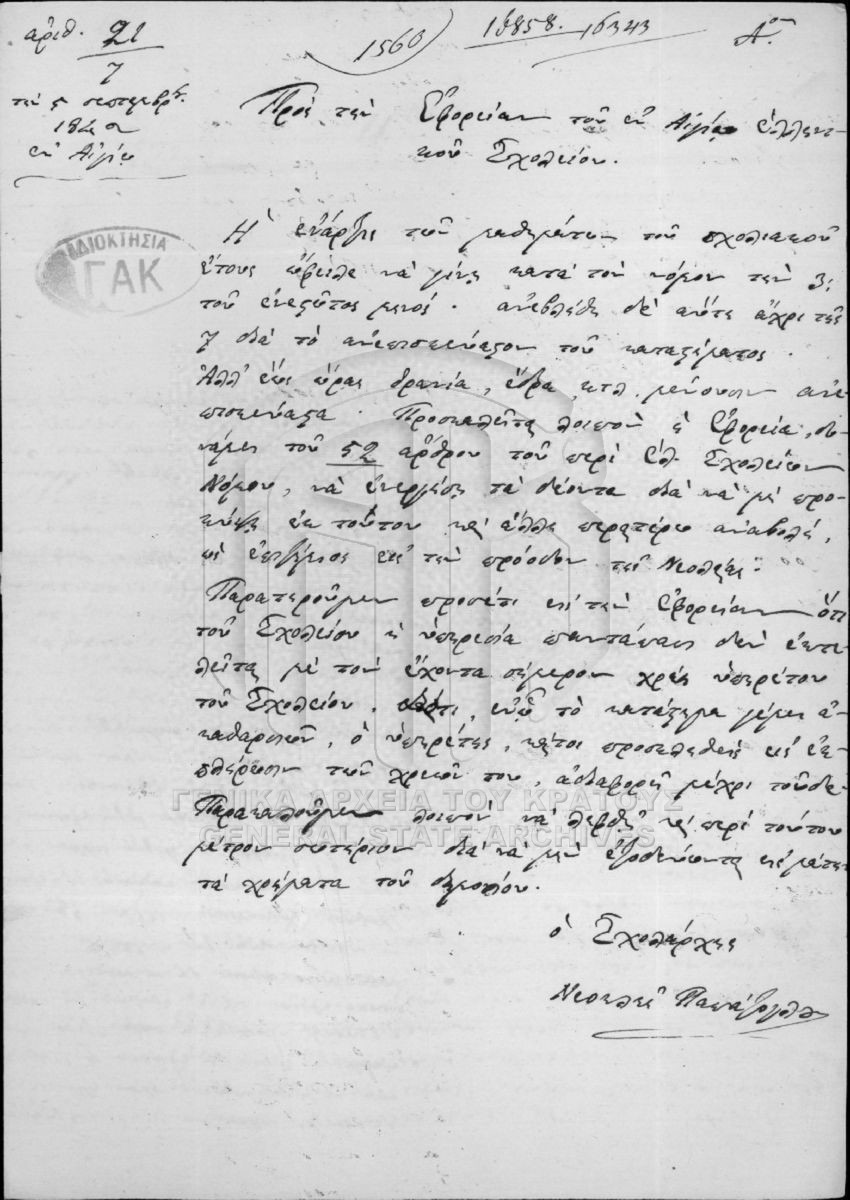 ἀριθ. 21
7
1560
16858. 16343
Α.ον
τῇ 5 Σεπτεμβρ.
184
ἐν Αἰγίῳ
Πρὸς τὴν Ἐφορείαν τοῦ ἐν Αἰγίῳ Ἑλληνι-
κοῦ Σχολείου.
ΙΔΙΟΚΤΗΣΙΑ
ΓΑΚ
Ἡ ἔναρξις τῶν μαθημάτων τοῦ σχολιακοῦ
ἔτους ὤφειλε νὰ γίνῃ κατὰ τὸν νόμον τὴν 3:
τοῦ ἐνεστῶτος μηνός. ἀνεβλήθη δὲ αὕτη ἄχρι τῆς
7 διὰ τὸ ἀνεπισκεύαστον τοῦ καταστήματος.
Ἀλλ' ἕως ὥρας θρανία, ἕδρα, κτλ. μένουσιν ἀνε-
πισκεύαστα. Προσκαλεῖται λοιπὸν ἡ Ἐφορεία, δυ-
νάμει τοῦ 52 ἄρθρου τοῦ περὶ Ἑλ. Σχολείων
Νόμου, νὰ ἐνεργήσῃ τὰ δέοντα διὰ νὰ μὴ προ-
κύψῃ ἐκ τούτου καὶ ἄλλη περαιτέρω ἀναβολή,
ὡς ἐπιζήμιος εἰς τὴν πρόοδον τῆς Νεολαίας.
Παρατηροῦμεν προσέτι εἰς τὴν Ἐφορείαν ὅτι
τοῦ Σχολείου ἡ ὑπηρεσία παντάπασι δὲν ἐκτε-
λεῖται μὲ τὸν ἔχοντα σήμερον χρέη ὑπηρέτου
τοῦ Σχολείου. διότι, ἐνῷ τὸ κατάστημα γέμει ἀ-
καθαρσιῶν, ὁ ὑπηρέτης, καίτοι προσκληθεὶς εἰς ἐκ-
πλήρωσιν τῶν χρεῶν του, ἀδιαφορεῖ μέχρι τοῦδε.
Παρακαλοῦμεν λοιπὸν νὰ ληφθῇ καὶ περὶ τούτου
μέτρον σωτήριον διὰ νὰ μὴ ἐξοδεύωνται εἰς μάτην
τὰ χρήματα τοῦ δημοσίου.
ΓΕΝΙΚΑ ΑΡΧΕΙΑ ΤΟΥ ΚΡΑΤΟΥΣ
GENERAL STATE ARCHIVES
ὁ Σχολάρχης